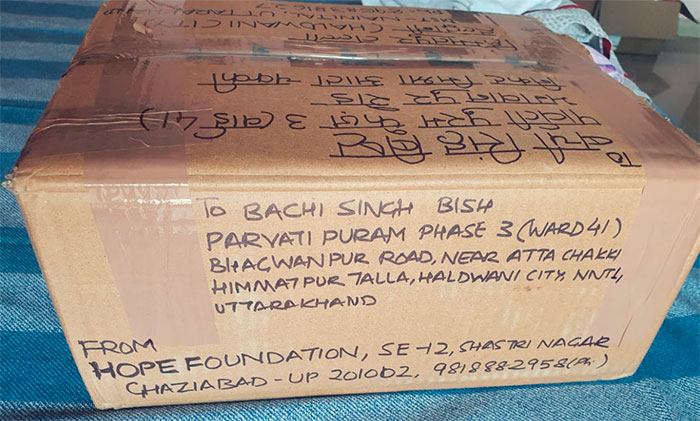 To
बची सिंह बिष्ट
पार्वती पुरम फेज़ 3 (वार्ड 41)
भगवान पुर रोड
निकट आटा चक्की
हिम्मतपुर तल्ला
हल्द्वानी (HALDWANI CITY)
NAINITAL, UTTARAKHAND
To BACHI SINGH BISH
PARVATI PURAM PHASE 3 (WARD 41)
BHAGWANPUR ROAD, NEAR ATTA CHAKKI
HIMMATPUR TALLA, HALDWANI CITY, NNTL,
UTTARAKHAND
FROM
HOPE FOUNDATION, SE-12, SHASTRI NAGAR
GHAZIABAD - UP 201002, 9818882958 (Ph:)